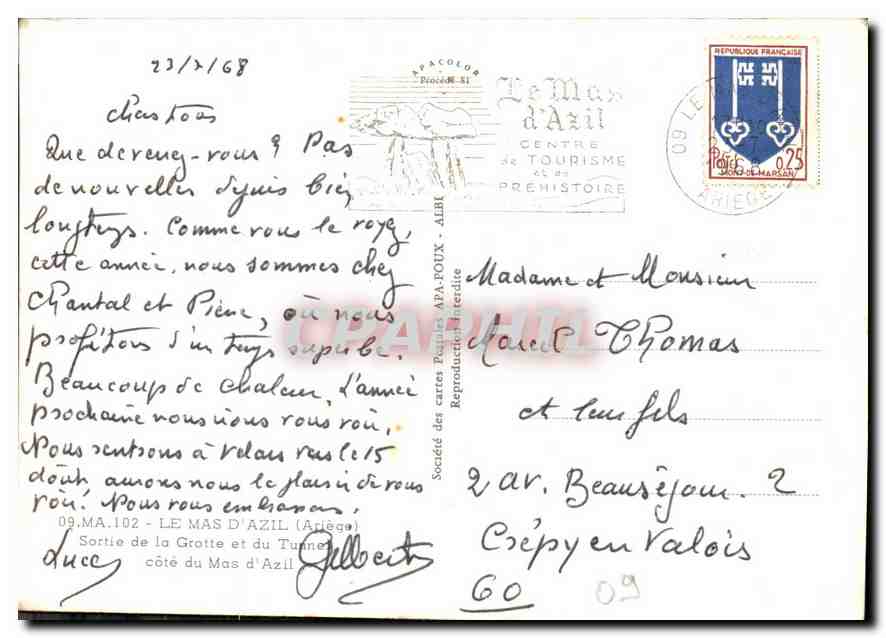 23/7/68
Chers tous
Que devenez-vous ? Pas
de nouvelles depuis bien
longtemps. Comme vous le voyez,
cette année, nous sommes chez
Chantal et Pierre, où nous
profitons d'un temps superbe.
Beaucoup de chaleur. L'année
prochaine nous irons vous voir.
Nous rentrons à Velars vers le 15
août, aurons nous le plaisir de vous
voir? Nous vous embrassons.
Luce Gilbert
09.MA.102 - LE MAS D'AZIL (Ariège)
Sortie de la Grotte et du Tunnel
côté du Mas d'Azil
APACOLOR
Procédé 81
Société des cartes Postales APA-POUX - ALBI
Reproduction interdite
Le Mas
d'Azil
CENTRE
de TOURISME
et de
PRÉHISTOIRE
09 LE
ARIEGE
REPUBLIQUE FRANÇAISE
0,25
MONT-DE-MARSAN
Madame et Monsieur
Marcel Thomas
et leur fils
2 av. Beauséjour. 2
Crépy en Valois
60
09
CPAPHIL